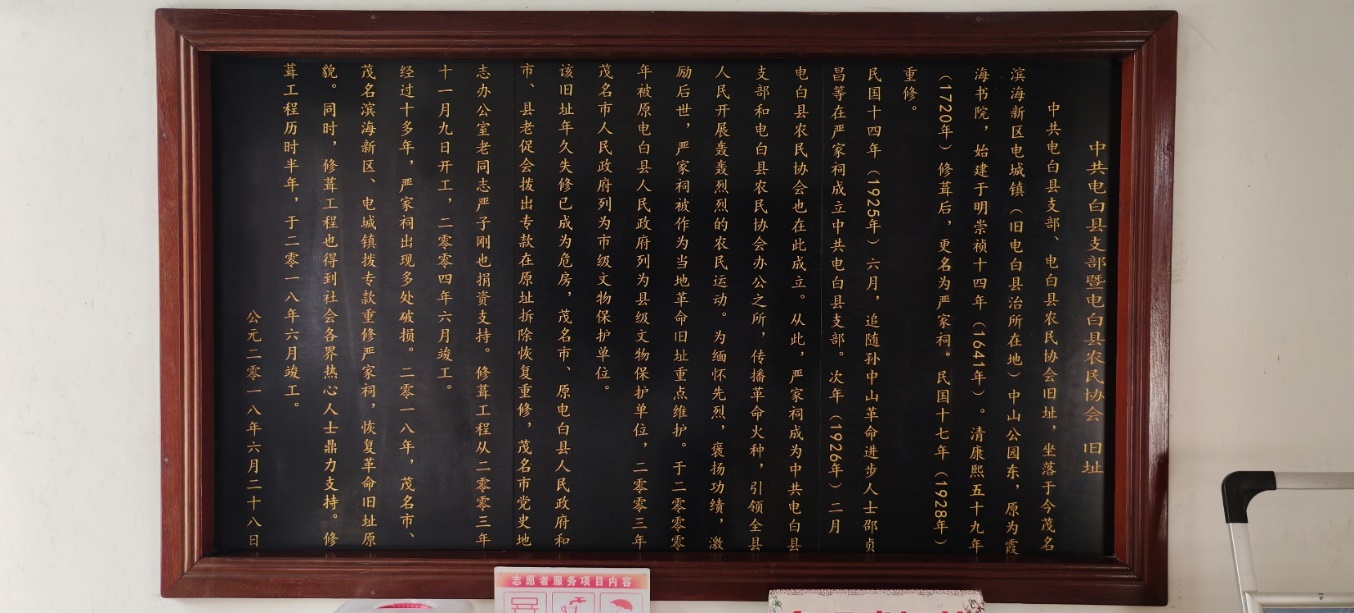 中共电白县支部暨电白县农民协会 旧址
中共电白县支部、电白县农民协会旧址，坐落于今茂名
滨海新区电城镇（旧电白县治所在地）中山公园东，原为霞
海书院，始建于明崇祯十四年（1641年）。清康熙五十九年
（1720年）修葺后，更名为严家祠。民国十七年（1928年）
重修。
民国十四年（1925年）六月，追随孙中山革命进步人士邵贞
昌等在严家祠成立中共电白县支部。次年（1926年）二月
电白县农民协会也在此成立。从此，严家祠成为中共电白县
支部和电白县农民协会办公之所，传播革命火种，引领全县
人民开展轰轰烈烈的农民运动。为缅怀先烈，褒扬功绩，激
励后世，严家祠被作为当地革命旧址重点维护。于二零零零
年被原电白县人民政府列为县级文物保护单位，二零零三年
茂名市人民政府列为市级文物保护单位。
该旧址年久失修已成为危房，茂名市、原电白县人民政府和
市、县老促会拨出专款在原址拆除恢复重修，茂名市党史地
志办公室老同志严子刚也捐资支持。修葺工程从二零零三年
十一月九日开工，二零零四年六月竣工。
经过十多年，严家祠出现多处破损。二零一八年，茂名市、
茂名滨海新区、电城镇拨专款重修严家祠，恢复革命旧址原
貌。同时，修葺工程也得到社会各界热心人士鼎力支持。修
葺工程历时半年，于二零一八年六月竣工。
公元二零一八年六月二十八日
志愿者服务项目内容